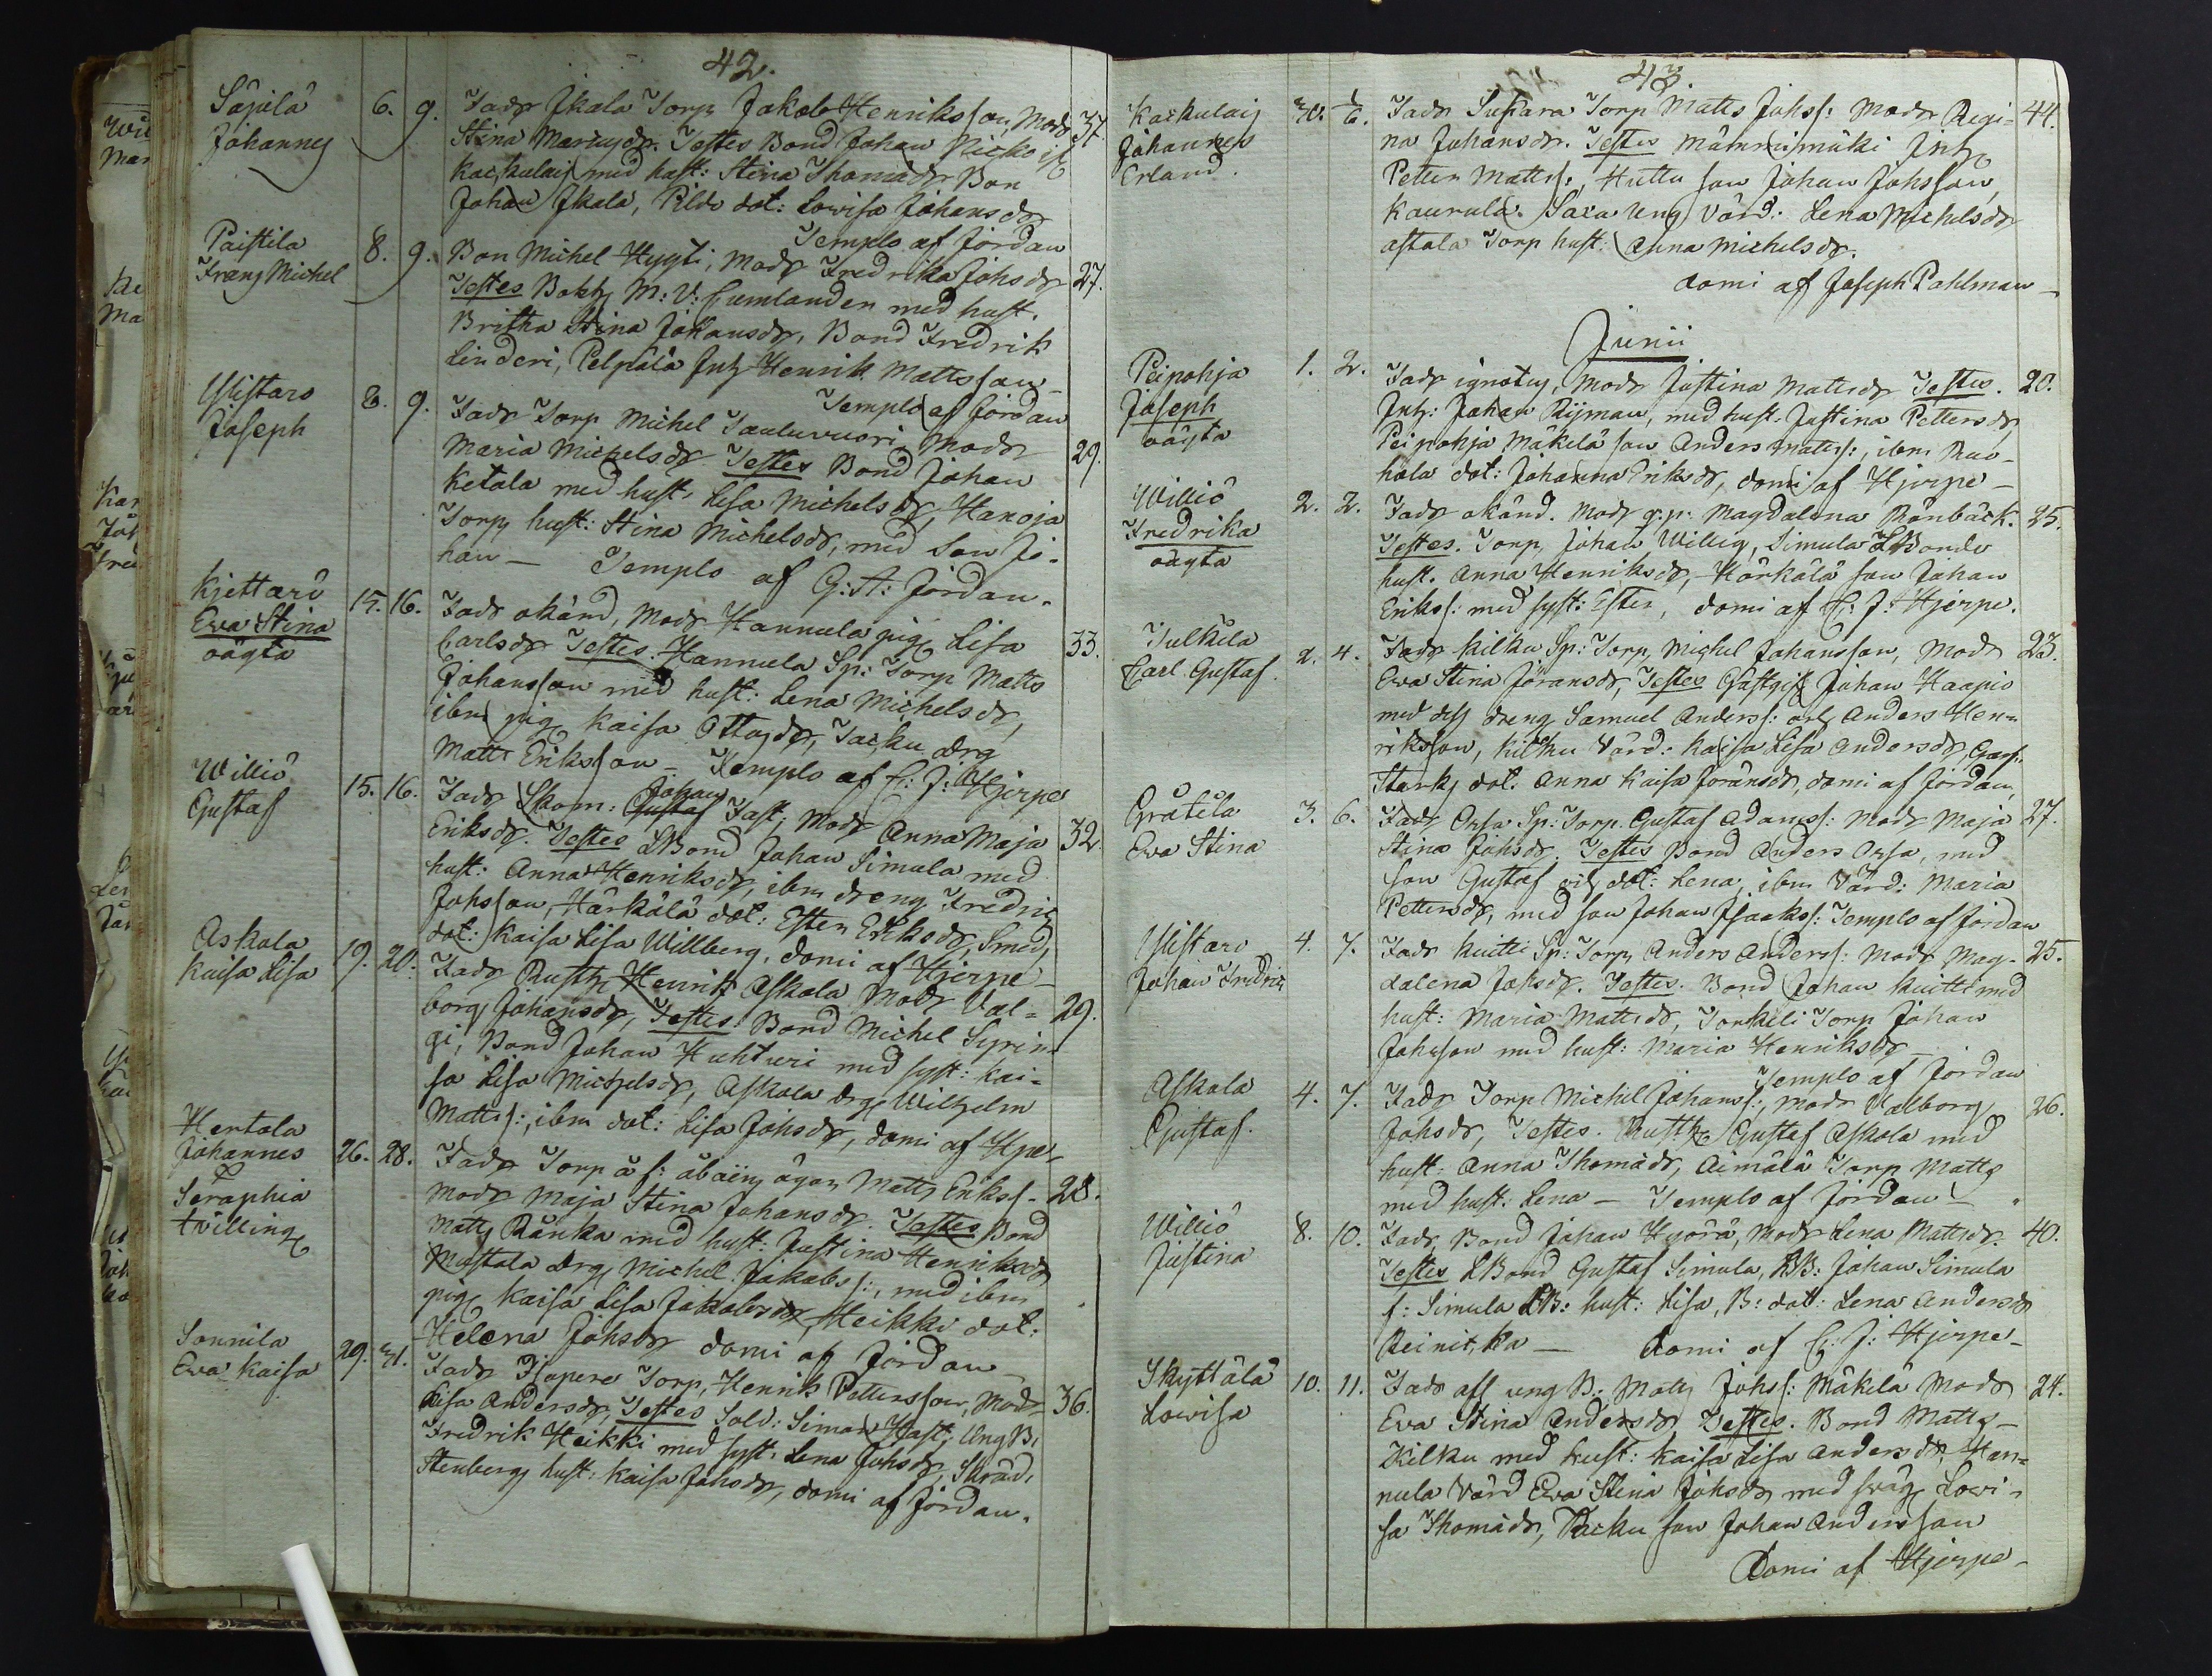 42.
Säpilä 6. 9. Fadr Jkala Torp. Jakob Henriksson, Modr 37.
Johannes Stina Mariægdr. Testes Bond Johan
Kaukulais med hust: Stina Thomædr Bon
Johan Jkala, Pildo dot: Lowisa Johansdr
Templo af Jordan
Paistila 8. 9. Bon Michel Hygli, Modr Fredrika Johsdr 27.
Franz Michel Testes Bokh M: V: Gumlander med hust.
Britha Stina Johansdr, Bond Fredrik
Linderi, Pelpälä Inh Henrik Mattsson
Templo af Jordan
Ylistaro 8. 9. Fadr Torp Michel Tauluvuori Modr 29.
Joseph Maria Michelsdr Testes Bond Johan
Ketala med hust. Lisa Michelsdr, Hanoja
Torp hust: Stina Michelsdr, med son Jo-
han — Templo af G: A: Jordan.
Kjettarö 15. 16. Fadr okänd, Modr Hannula pig Lisa 33.
Ewa Stina Carlsdr Testes. Hannula Sp: Torp Matts
oägta Johansson med hust: Lena Michelsdr,
ibm pig Kaisa Ottosdr, Tacku drg
Matts Eriksson — Templo af C: J: Hjerpe
Williö 15. 16. Fadr Skom: Gustaf Johan Fast, Modr Anna Maja 32.
Gustaf Eriksdr. Testes LBond Johan Simula med
hust: Anna Henriksdr, ibm dreng Fredric
Johsson, Härkälä dot: Ester Eriksdr, Smed
dot: Kaisa Lisa Willberg. domi af Hjerpe
Askola 19. 20. Fadr Rusth Henrik Askola Modr Val- 29.
Kaisa Lisa borg Johansdr, Testes. Bond Michel Syrin-
gi, Bond Johan Huhturi med syst: Kai-
sa Lisa Michelsdr, Askola drg Wilhelm
Mattss:, ibm dot: Lisa Johsdr, domi af Hjpe
Hertala 26. 28. Fadr Torp å s: åboing ägor Matts Erikss- 28.
Johannes Modr Maja Stina Johansdr. Testes Bond
&
Seraphia Matts Ränka med hust: Justina Henriksdr
twilling Mustala drg Michel Jakobss:, med ibm
pig Kaisa Lisa Jakobsdr, Heikki dot:
Helena Johsdr domi af Jordan
Sonnila 29. 31. Fadr Hapero Torp, Henrik Pettersson, Modr 36.
Ewa Kaisa Lisa Andersdr, Testes Sold: Simon Hast, Ung B,
Fredrik Heikki med syst. Lena Johsdr, Skräd,
Stenberg hust: Kaisa Johsdr, domi af Jordan.
43.
Kaukulais 30. Fadr Sukara Torp Matts Johss: Modr Regi- 44.
Johannes na Johansdr. Testes Mämmimäki Inh
Erland. Petter Mattss:, Huttu son Johan Johsson,
Kaurula. Saxa ung Värd: Lena Michelsdr
astala Torp hust: Anna Michelsdr.
domi af Joseph Pahlman
Junii
Peipohja 1. 2. Fadr ignotus, Modr Justina Mattsdr Testes. 20.
Joseph Inh: Johan Rijman, med hust. Justina Pettersdr
oägta Peipohja Mäkilä son Anders Mattss:, ibm Ruo-
hola dot: Johanna Eriksdr, domi af Hjerpe —
Williö 2. 2. Fadr okänd. Modr q.p: Magdalena Rönbäck. 25.
Fredrika Testes. Torp Johan Willig, Simula LBonde
oägta hust. Anna Henriksdr, Härkälä son Johan
Erikss: med syst: Ester, domi af C: J: Hjerpe.
Tulkila 2. 4. Fadr Kilku Sp: Torp, Michel Johansson, Modr 23.
Carl Gustaf. Ewa Stina Joransdr, Testes Gästgif Johan Haapio
med dess dreng Samuel Anderss: och Anders Hen-
riksson, Kilku Värd: Kaisa Lisa Andersdr,
Stark dot. Anna Kaisa Joransdr, domi af Jordan
Gråtila 3. 6. Fadr Ossa Sp: Torp. Gustaf Adamss: Modr Maja 27.
Ewa Stina Stina Johsdr. Testes Bond Anders Ossa, med
son Gustaf och dot: Lena, ibm Värd: Maria
Pettersdr, med son Johan Jsaakss: Templo af Jordan
Ylistaro 4. 7. Fadr Kuitti Sp: Torp Anders Anderss: Modr Mag- 25.
Johan Fredric dalena Johsdr. Testes. Bond Johan Kuitti med
hust: Maria Mattsdr, Torkeli Torp Johan
Johsson med hust: Maria Henriksdr
Templo af Jordan
Askola 4. 7. Fadr Torp Michel Johanss:, Modr Valborg 26.
Gustaf. Johsdr, Testes. Rusth Gustaf Askola med
hust: Anna Thomædr, Aimälä Torp Matts
med hust: Lena — Templo af Jordan
Williö 8. 10. Fadr Bond Johan Hyörä, Modr Lena Mattsdr. 40.
Justina Testes LBond Gustaf Simula, LB: Johan Simula
s: Simula LB: hust: Lisa, B: dot: Lena Andersdr
Reinikka — domi af C: J: Hjerpe —
Skyttälä 10. 11. Fadr afl ung B: Matts Johss: Mäkelä Modr 24.
Lowisa Ewa Stina Andersdr Testes. Bond Matts —
Kilku med hust: Kaisa Lisa Andersdr, Han-
nula Värd Ewa Stina Johsdr med swäg Lowi-
sa Thomædr, Tacku son Johan Andersson
Domi af Hjerpe —